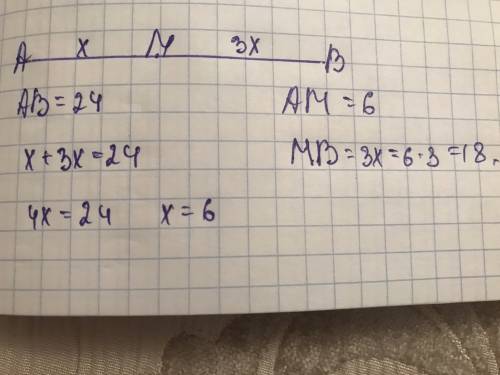 x M 3x
A B
AB = 24 AM = 6
x + 3x = 24 MB = 3x = 6 · 3 = 18.
4x = 24 x = 6